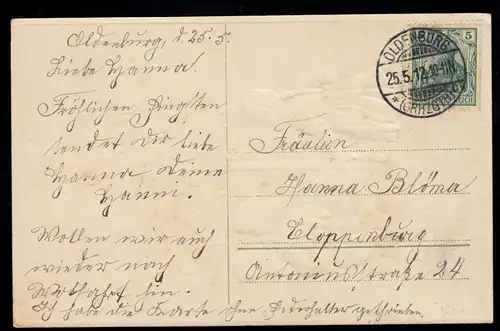 Oldenburg, d. 25. 5.
Liebe Hanna!
Fröhlichen Pingsten
sendet dir liebe
Hanna deine
Hanni.
Wollen wir auch
wieder nach
hin.
Ich habe die Karte ohne Federhalter geschrieben.
OLDENBURG
25.5.12.10-11V
*(GRHZGTM)*
5
Fräulein
Hanna Blöma
Cloppenburg
Antoniusstraße 24